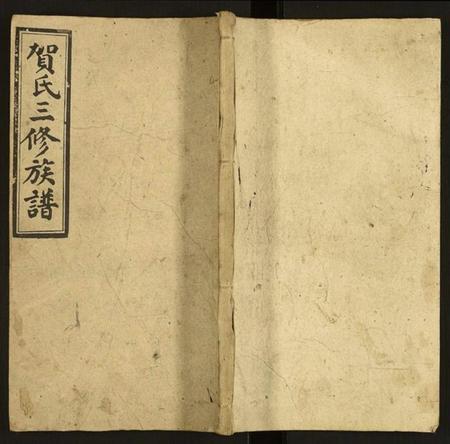 賀氏三修族譜